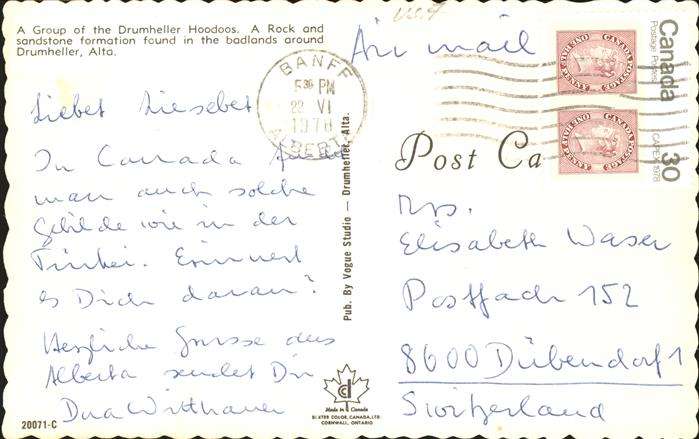 A Group of the Drumheller Hoodoos. A Rock and
sandstone formation found in the badlands around
Drumheller, Alta.
Air mail
BANFF
PM
22 VI
1978
ALBERTA
Canada
Postage Postes
30
CAPEX 1978
CANADA POSTAGE
ONE HALF PENNY
CANADA POSTAGE
ONE HALF PENNY
Post Ca
Liebes Liesebet
In Canada findet
man auch solche
Gebilde wie in der
Türkei. Erinnert
es Dich daran?
Herzliche Grüsse aus
Alberta sendet Dir
Witthauer
Pub. By Vogue Studio — Drumheller, Alta.
Mrs.
Elisabeth Waser
Postfach 152
8600 Dübendorf 1
Switzerland
Made in Canada
DEXTER COLOR, CANADA, LTD.
CORNWALL, ONTARIO
20071-C